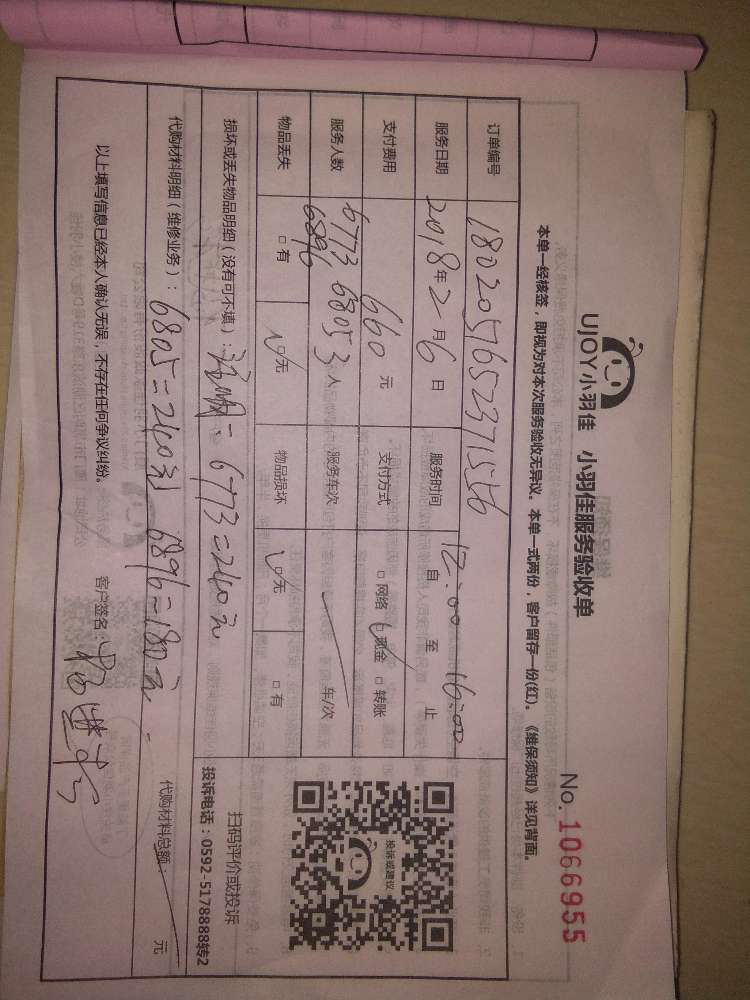 UJOY小羽佳 小羽佳服务验收单
No. 1066955
本单一经核签，即视为对本次服务验收无异议。本单一式两份，客户留存一份(红)。《维保须知》详见背面。
订单编号 1802057652371556
服务日期 2018年2月6日 服务时间 12:00 自 至 16:00 止
支付费用 660 元 支付方式 □网络 □现金 □转账
服务人数 6773 6805 6896 3人 服务车次 车/次
物品丢失 □有 □无 物品损坏 □无 □有
投诉或建议
扫码评价或投诉
投诉电话：0592-5178888转2
损坏或丢失物品明细（没有可不填）： 6773=240元
代购材料明细（维修业务）： 6805=240元 6896=180元
代购材料总额： 元
以上填写信息已经本人确认无误，不存在任何争议纠纷。 客户签名：